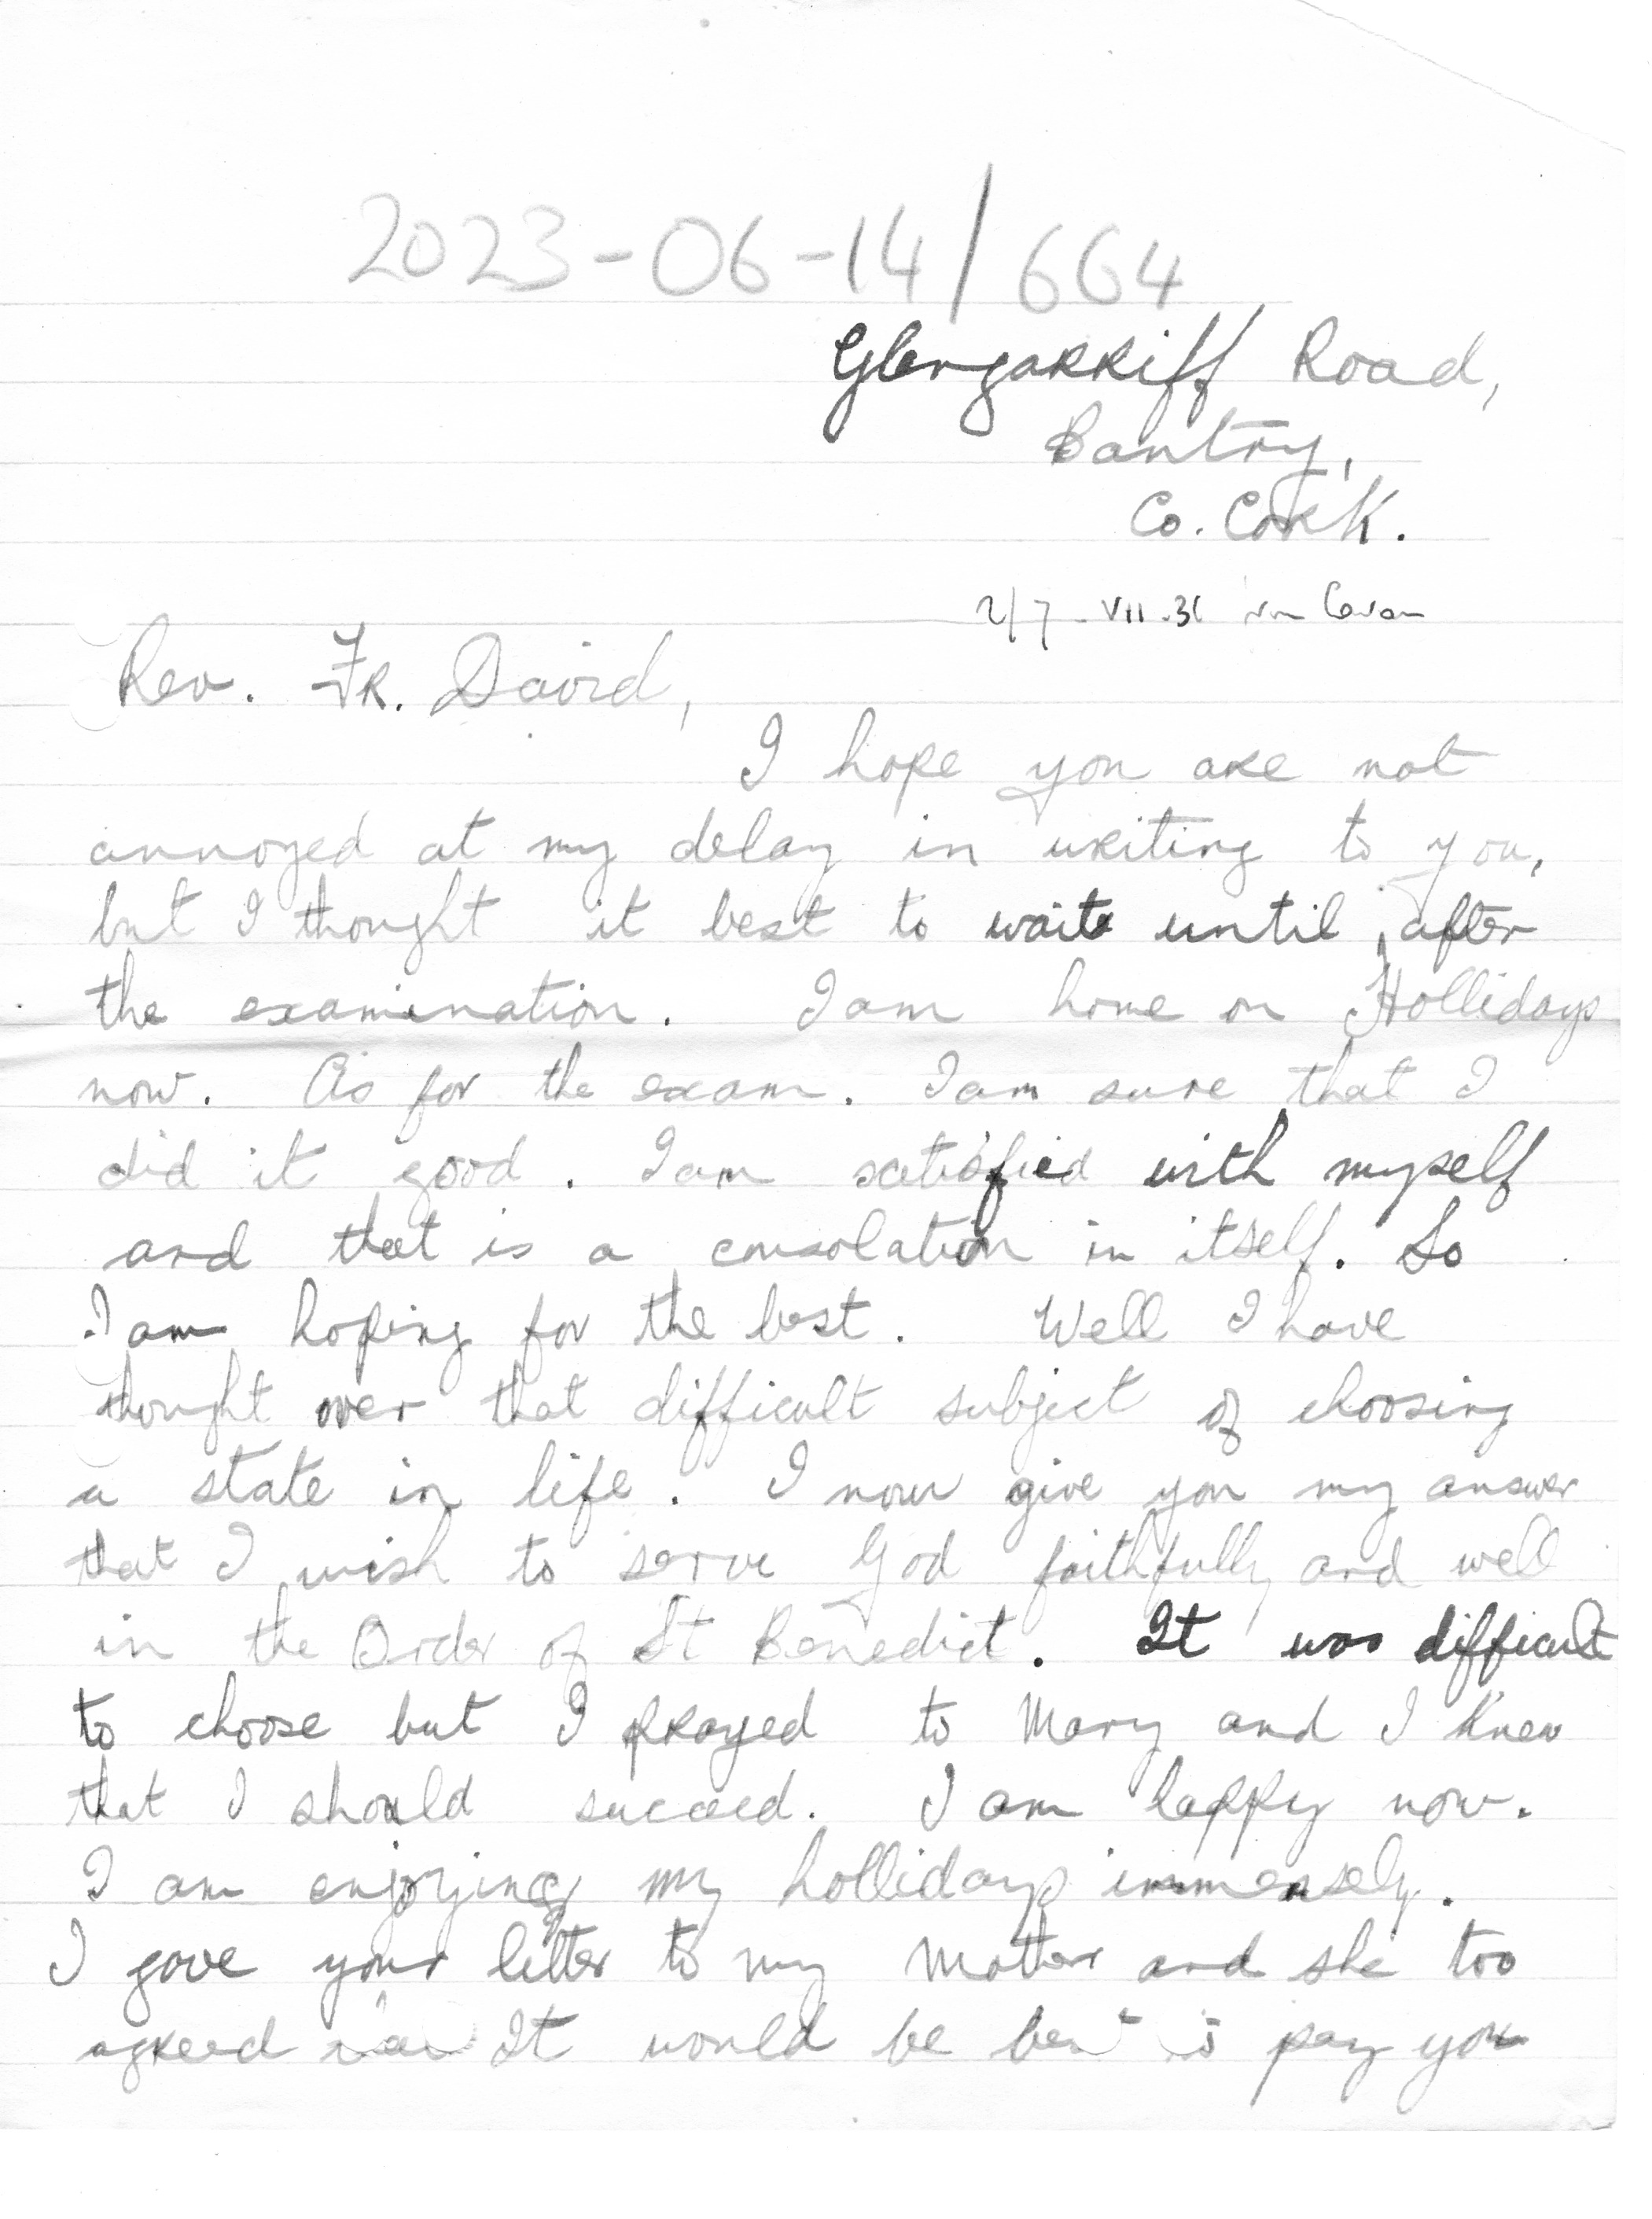 2023-06-14/664
Glengarriff Road,
Bantry,
Co. Cork.
2/7 - VII.31
Rev. Fr. David,
I hope you are not
annoyed at my delay in writing to you,
but I thought it best to waite until after
the examination. I am home on Hollidays
now. As for the exam. I am sure that I
did it good. I am satisfied with myself
and that is a consolation in itself. So
I am hoping for the best. Well I have
thought over that difficult subject of choosing
a state in life. I now give you my answer
that I wish to serve God faithfully and well
in the Order of St Benedict. It was difficult
to choose but I prayed to Mary and I knew
that I should succeed. I am happy now.
I am enjoying my hollidays immensely.
I gave your letter to my Mother and she too
agreed It would be best to pay you